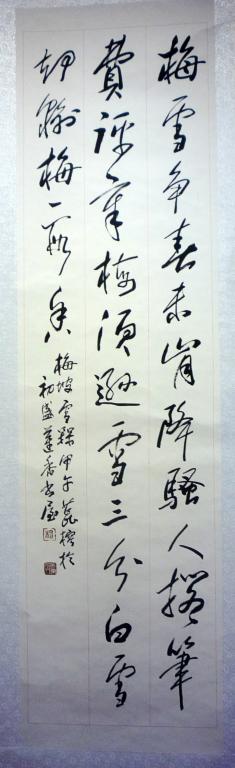 梅雪争春未肯降骚人搁笔
费评章梅须逊雪三分白雪
却输梅一段香
梅坡雪梅甲午
初盛莲香书屋